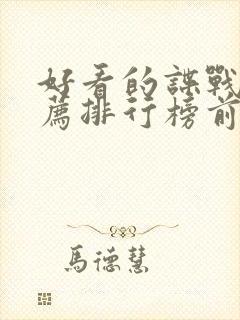 好看的諜戰
薦排行榜前
馬德慧